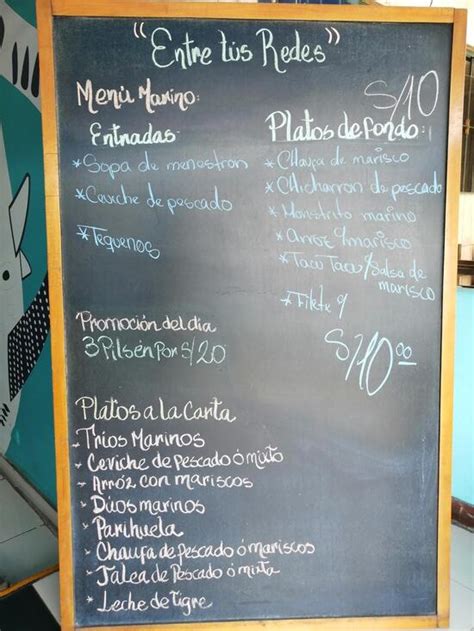 "Entre tus Redes"
S/10
Menú Marino:
Entradas
* Sopa de menestron
* Ceviche de pescado
* Tequeños
Platos de fondo:
* Chaufa de marisco
* Chicharron de pescado
* Monstrito marino
* Arroz c/marisco
* Tacu Tacu/Salsa de
marisco
* Filete c/
S/10.00
Promoción del dia
3 Pilsen Por S/20
Platos a la Carta
- Tríos Marinos
- Ceviche de Pescado ó mixto
- Arróz con mariscos
- Dúos marinos
- Parihuela
- Chaufa de pescado ó mariscos
- Jalea de Pescado ó mixta
- Leche de tigre